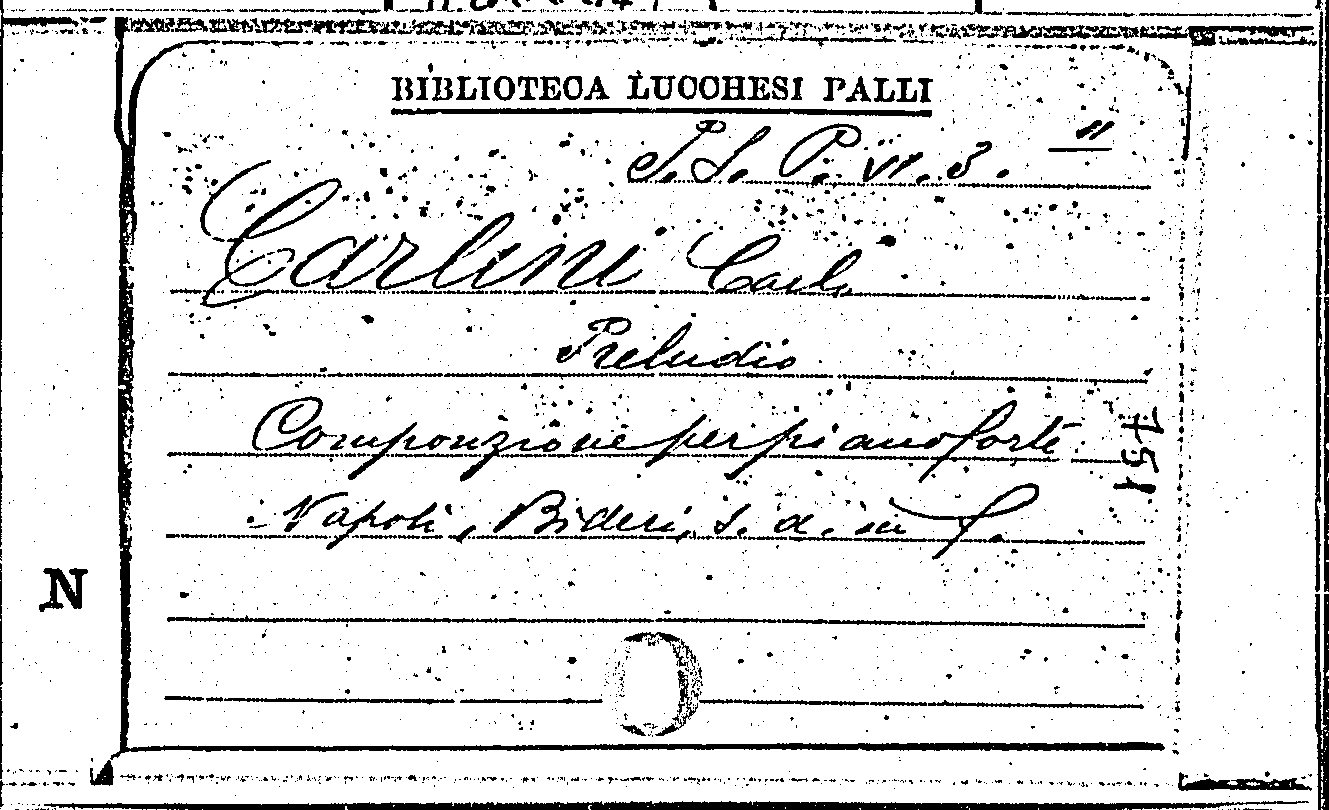 BIBLIOTECA LUCCHESI PALLI
P. VI. 3. "
Carlini Carlo
Preludio
Composizione per pianoforte
Napoli, Bideri, s. d. in f.
751
N